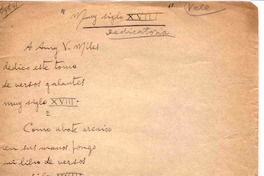 "Muy siglo XVIII" Vale
Dedicatoria
A Amy V. Miles
dedico este tomo
de versos galantes
muy siglo XVIII.
2
Como abate arcaico
en sus manos pongo
mi libro de versos
siglo XVIII